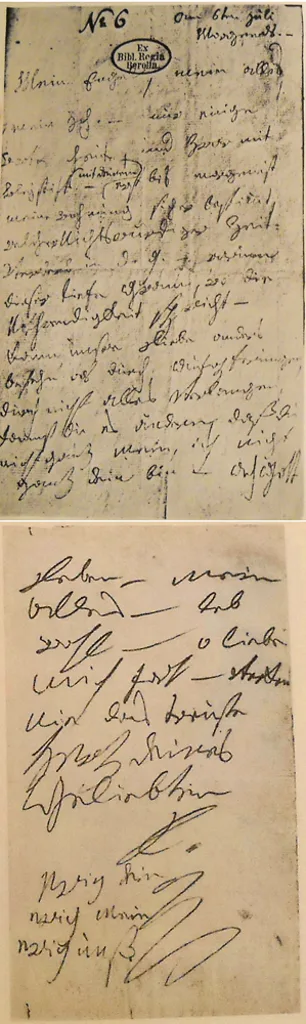 No 6
am 6ten Juli
Morgends. –
Ex
Bibl. Regia
Berolin.
Mein Engel, mein alles
mein Ich. – nur einige
Worte heute, und zwar mit
Bleystift – (mit deinem) erst
bis morgen ist
meine Wohnung sicher bestimmt
welcher Nichtswürdiger Zeit-
verderb in d.g. – warum
dieser tiefe Gram, wo die
Nothwendigkeit spricht –
Kann unsre Liebe anders
bestehn als durch Aufopferungen,
durch nicht alles verlangen,
kannst du es ändern, daß du
nicht ganz mein, ich nicht
ganz dein bin – Ach Gott
Leben – Mein
alles – leb
wohl – o liebe
mich fort – verken
nie das treuste
Herz deines
Geliebten
L.
ewig dein
ewig mein
ewig unß